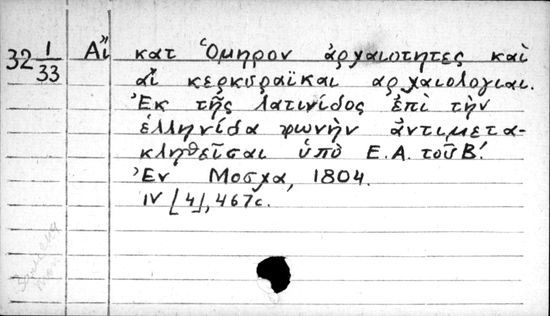 32 1/33 Αἵ κατ Ὁμηρον ἀρχαιοτητες καὶ
αἵ κερκυραϊκαι αρχαιολογιαι.
Ἐκ τῆς λατινίδος ἐπὶ τὴν
ἑλληνίδα φωνὴν ἀντιμετα-
κληθεῖσαι ὑπὸ Ε.Α. τοῦ Β.'
Ἐν Μοσχα, 1804.
IV [4], 467 с.